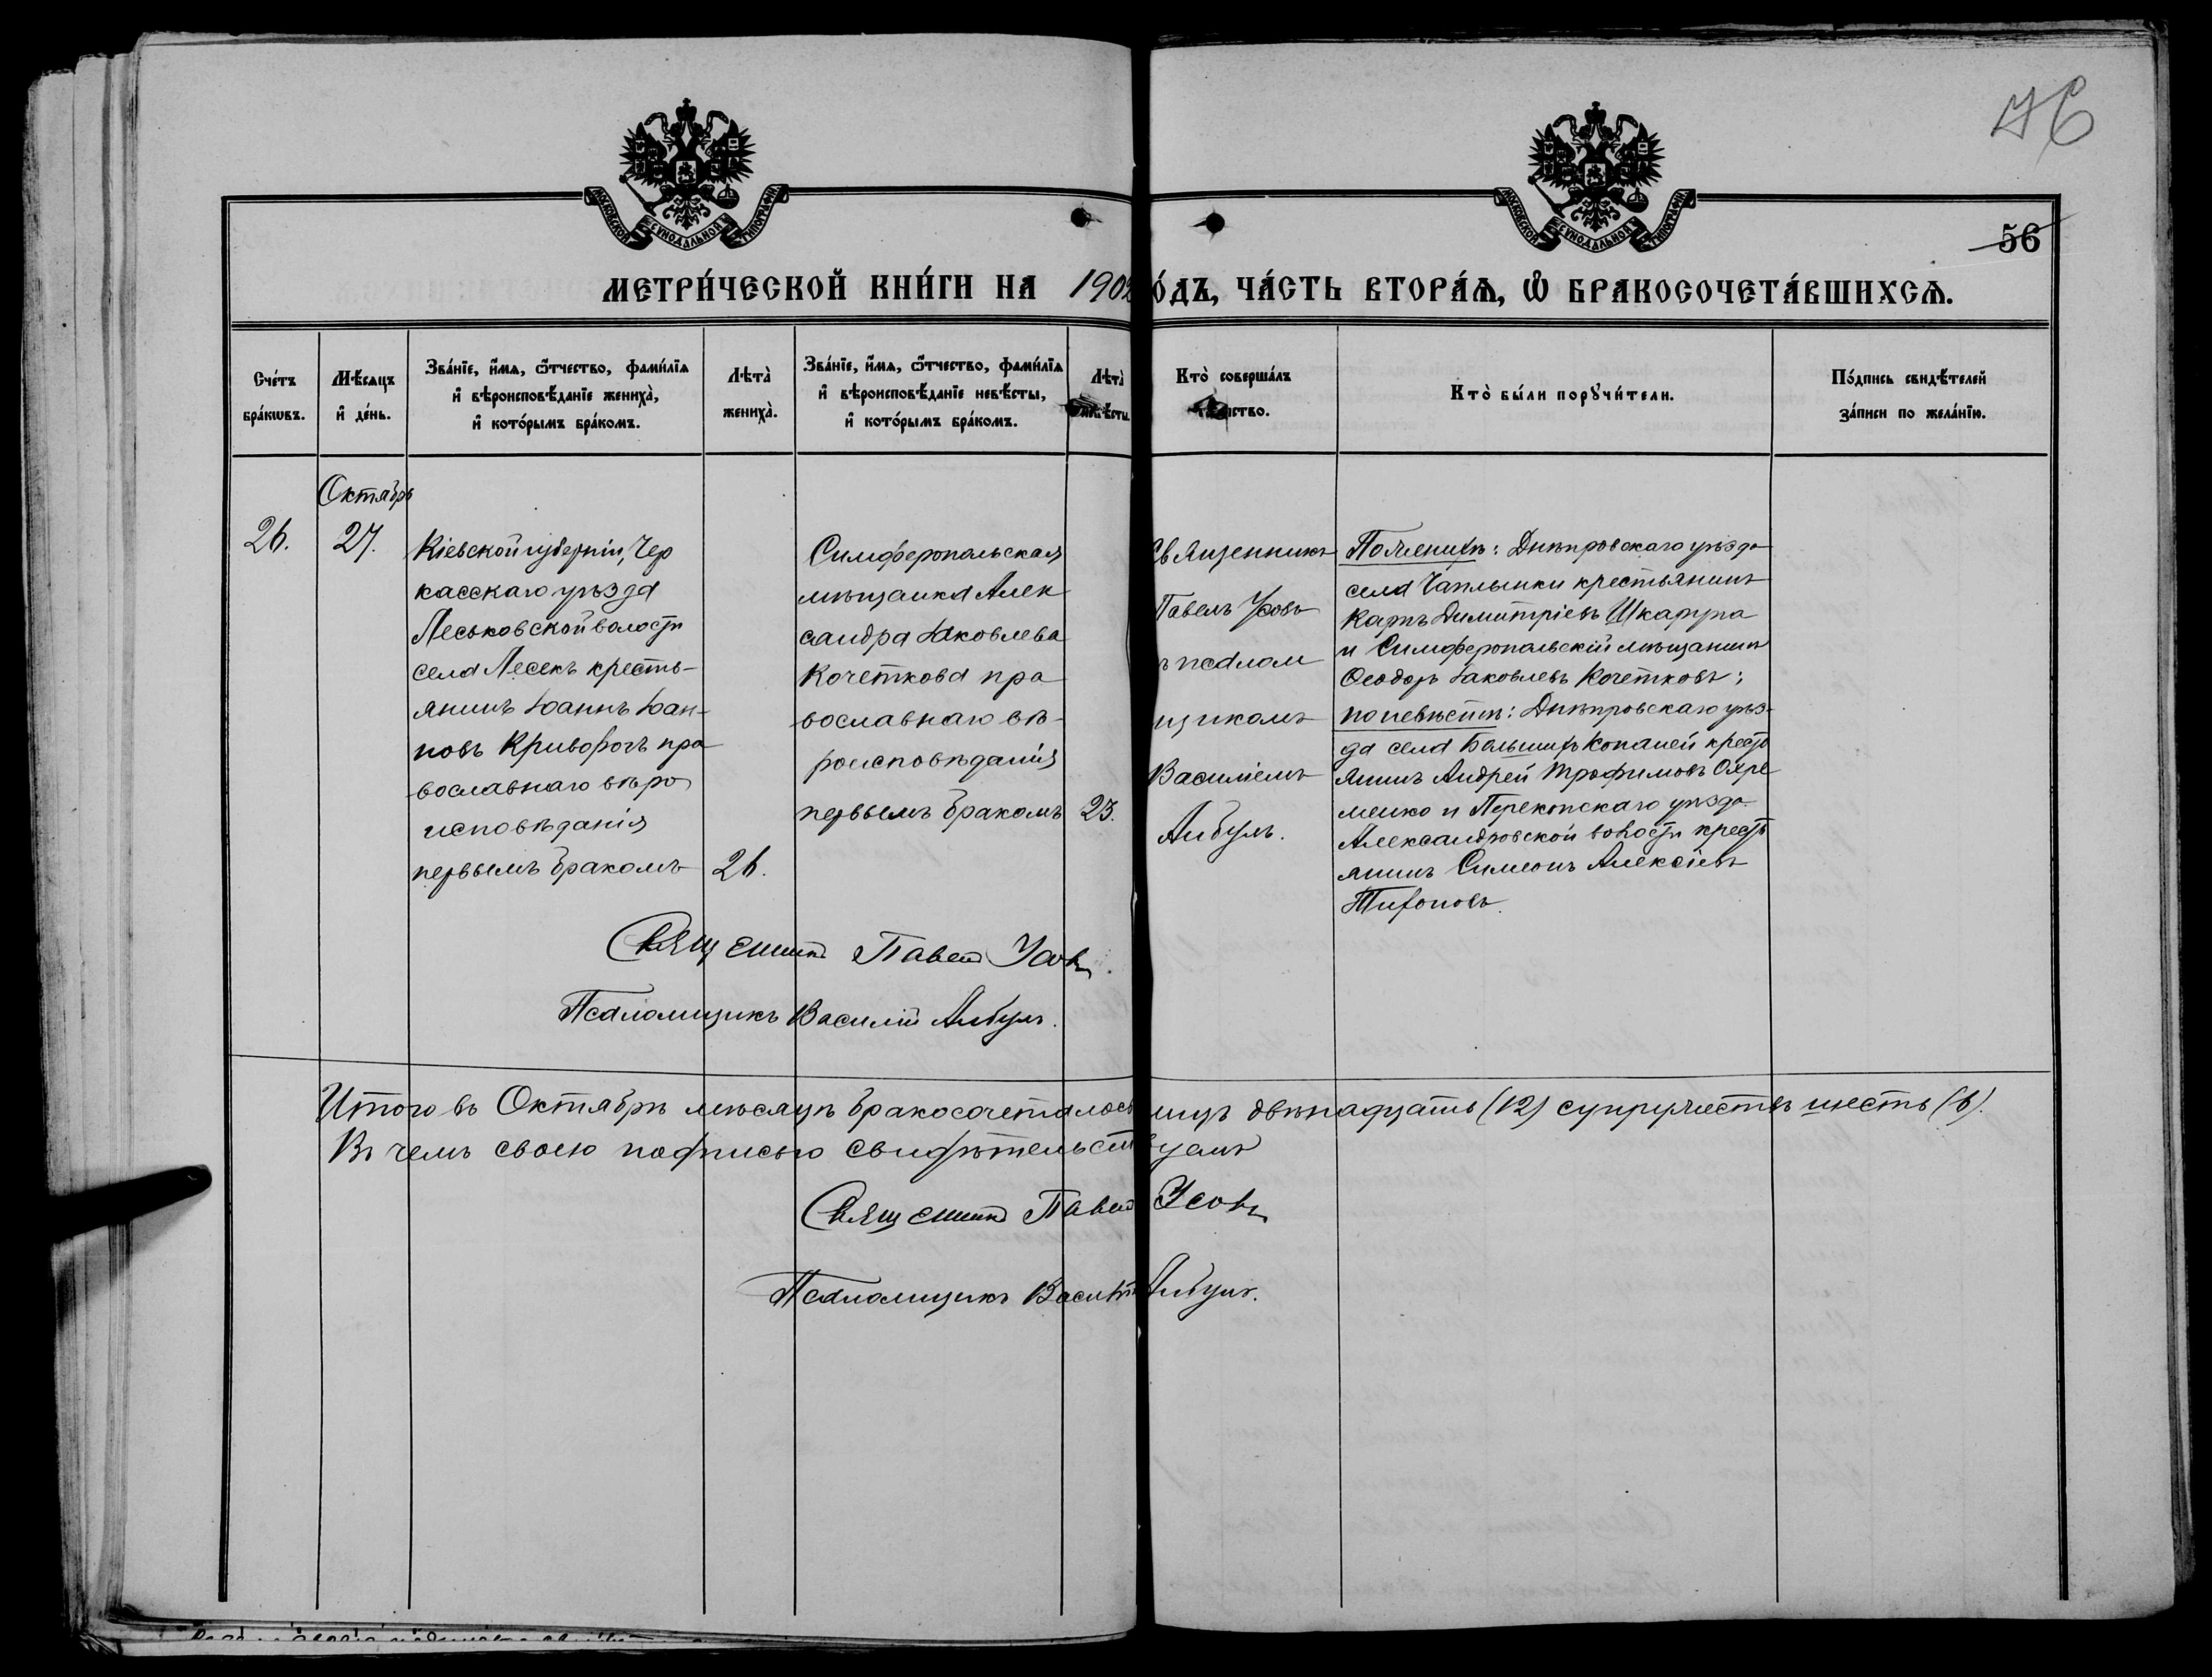 76
МОСКОВСКОЙ СѴНОДАЛЬНОЙ ТИПОГРАФІИ
МОСКОВСКОЙ СѴНОДАЛЬНОЙ ТИПОГРАФІИ
56
МЕТРИ́ЧЕСКОЙ КНИ́ГИ НА 1902
О́ДЪ, ЧА́СТЬ ВТОРА́Ѧ, Ѿ БРАКОСОЧЕТА́ВШИХСѦ.
Сче́тъ
бра́кѡвъ.
Мѣ́сѧцъ
и҆ де́нь.
Зва́нїе, и҆́мѧ, ѻ҆́тчество, фами́лїѧ
и҆ вѣроисповѣ́данїе жениха̀,
и҆ кото́рымъ бра́комъ.
Лѣта̀
жениха̀.
Зва́нїе, и҆́мѧ, ѻ҆́тчество, фами́лїѧ
и҆ вѣроисповѣ́данїе невѣ́сты,
и҆ кото́рымъ бра́комъ.
Лѣта̀
невѣ́сты.
Кто̀ соверша́лъ
таинство.
Кто̀ бы́ли порꙋчи́тели.
По́дпись свидѣ́телей
за́писи по жела́нїю.
Октябрь
26.
27.
Кіевской губерніи, Чер
касскаго уѣзда
Леськовской волости
села Лесекъ кресть-
янинъ Іоаннъ Іоан-
новъ Криворогъ пра
вославнаго вѣро
исповѣданія
первымъ бракомъ
26.
Симферопольская
мѣщанка Алек
сандра Іаковлева
Кочеткова пра
вославнаго вѣ-
роисповѣданія
первымъ бракомъ
23.
Священникъ
Павелъ Усовъ
ъ псалом
щикомъ
Василіемъ
Албулъ.
По женихѣ: Днѣпровскаго уѣзда
села Чаплынки крестьянинъ
Карпъ Димитріевъ Шкарупа
и Симферопольскій мѣщанинъ
Ѳеодоръ Іаковлевъ Кочетковъ;
по невѣстѣ: Днѣпровскаго уѣз-
да села Большихъ Копаней кресть
янинъ Андрей Трофимовъ Охре
менко и Перекопскаго уѣзда
Александровской волости кресть
янинъ Симеонъ Алексіевъ
Тихоновъ.
Священникъ Павелъ Усовъ.
Псаломщикъ Василій Албулъ.
Итого въ Октябрѣ мѣсяцѣ бракосочеталось лицъ двѣнадцать (12) супружествъ шесть (6).
Въ чемъ своею подписью свидѣтельствуемъ
Священникъ Павелъ Усовъ
Псаломщикъ Василій Албулъ.